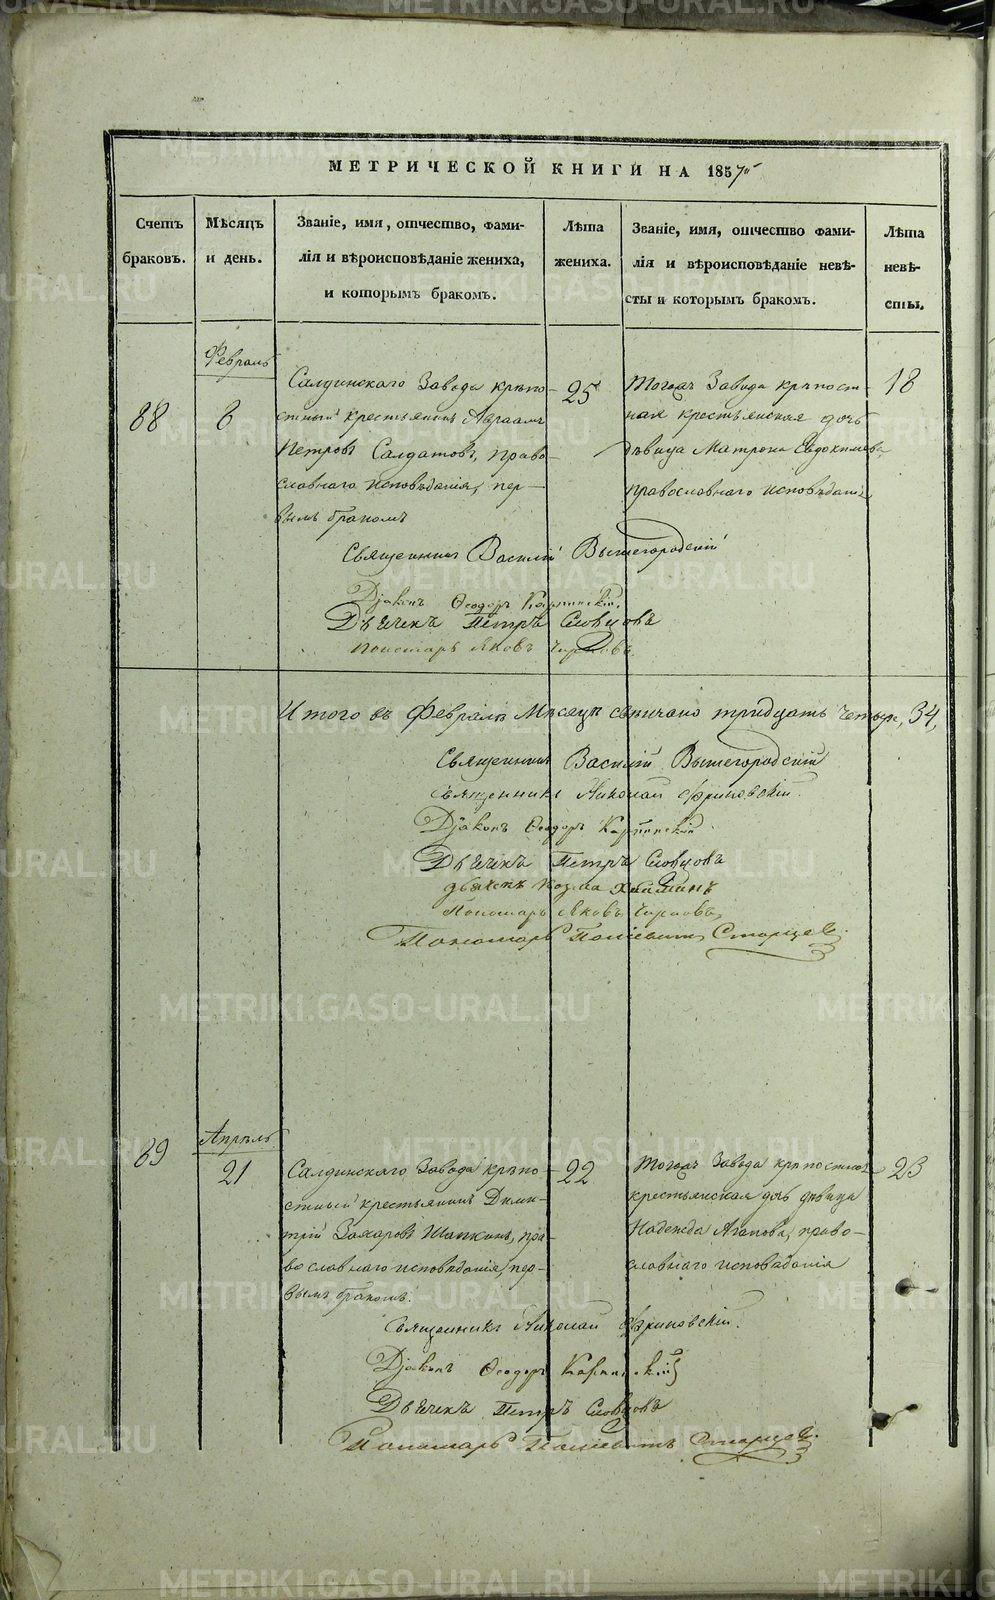 МЕТРИЧЕСКОЙ КНИГИ НА 1857й
Счетъ браковъ.
Мѣсяцъ и день.
Званіе, имя, отчество, фами-
лія и вѣроисповѣданіе жениха,
и которымъ бракомъ.
Лѣта жениха.
Званіе, имя, отчество фами-
лія и вѣроисповѣданіе невѣ-
сты и которымъ бракомъ.
Лѣта невѣ-
сты.
Февраль
88
8
Салдинскаго Завода крѣпо-
стный крестьянинъ Авраамъ
Петровъ Салдатовъ, право-
славнаго исповѣданія, пер-
вымъ бракомъ
25
Тогожъ Завода крѣпост-
ная крестьянская дочь
дѣвица Матрона Евдокимова,
православнаго исповѣданія
18
Священникъ Василій Вышегородскій
Діаконъ Ѳеодоръ Карпинскій
Дьячекъ Петръ Словцовъ
Пономарь Яковъ
Итого въ Февралѣ Мѣсяцѣ свѣнчано тридцать четыре, 34,
Священникъ Василій Вышегородскій
Священникъ Николай
Діаконъ Ѳеодоръ Карпинскій
Дьячекъ Петръ Словцовъ
дьячекъ Козма
Пономарь Яковъ
Пономарь Старцевъ
89
Апрѣль
21
Салдинскаго Завода крѣпо-
стный крестьянинъ Дими-
трій Захаровъ Шапкинъ, пра-
вославнаго исповѣданія, пер-
вымъ бракомъ.
22
Тогожъ Завода крѣпостная
крестьянская дочь дѣвица
Надежда Агапова, право-
славнаго исповѣданія
23
Священникъ Николай
Діаконъ Ѳеодоръ Карпинскій
Дьячекъ Петръ Словцовъ
Пономарь Старцевъ
METRIKI.GASO-URAL.RU